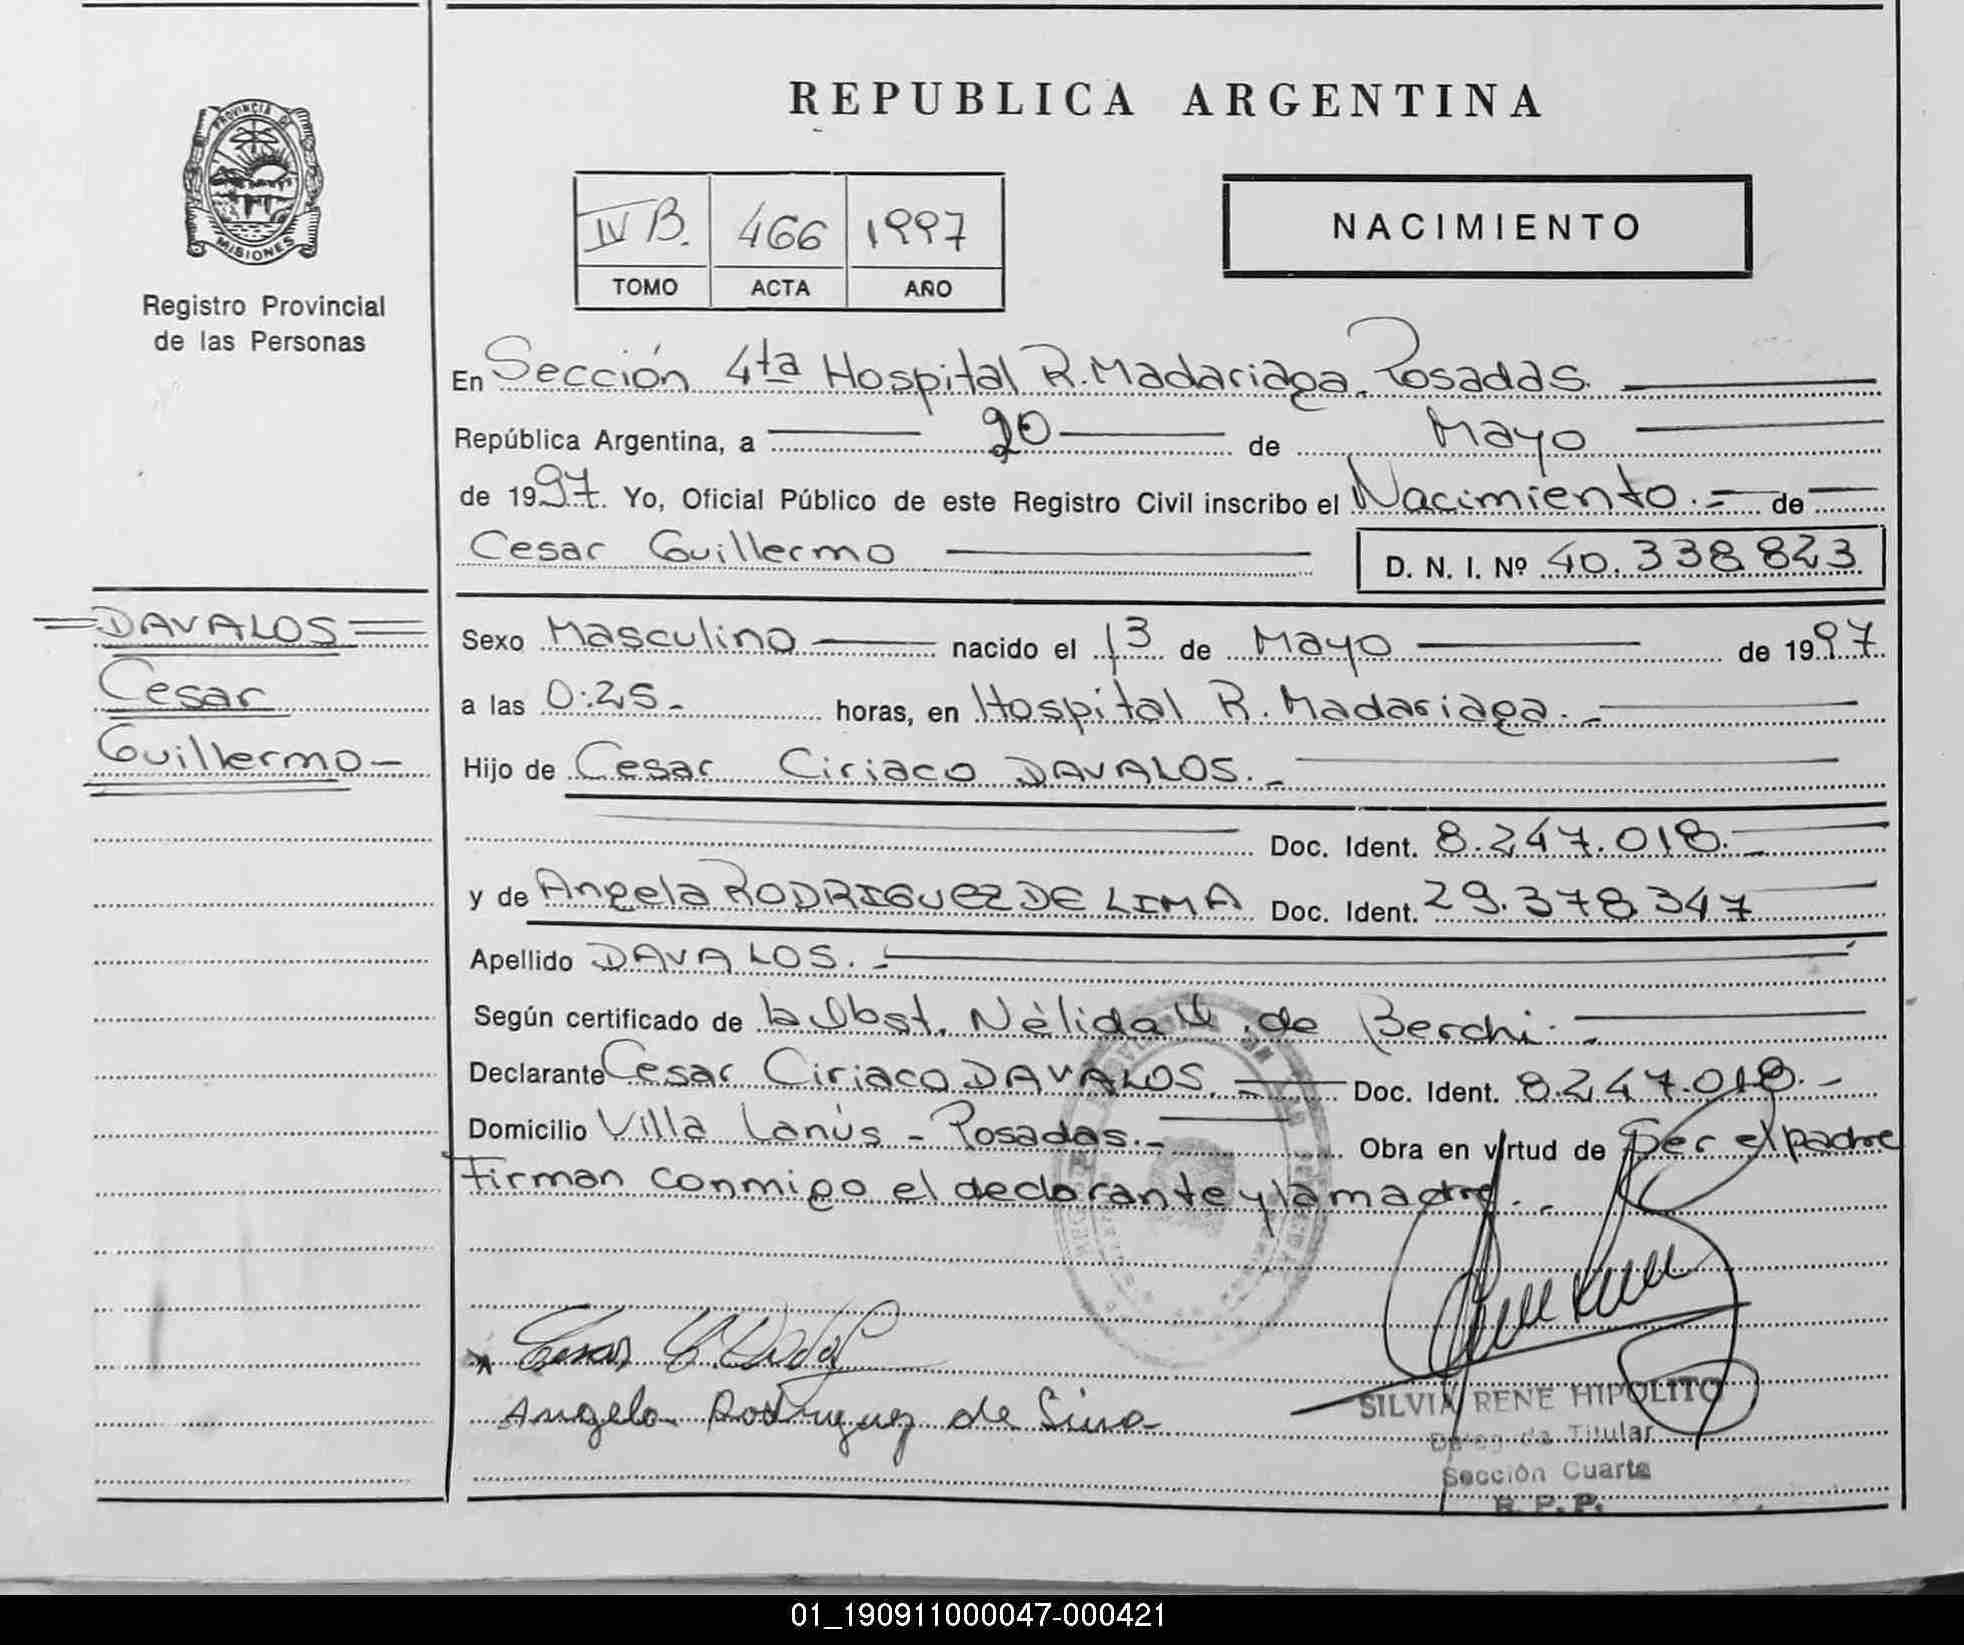 REPUBLICA ARGENTINA
PROVINCIA DE
MISIONES
Registro Provincial
de las Personas
IV B. 466 1997
TOMO ACTA AÑO
NACIMIENTO
En Sección 4ta Hospital R. Madariaga. Posadas.
República Argentina, a 20 de Mayo
de 1997. Yo, Oficial Público de este Registro Civil inscribo el Nacimiento.= de
Cesar Guillermo D. N. I. Nº 40.338.823
DAVALOS
Cesar
Guillermo
Sexo Masculino nacido el 13 de Mayo de 1997.
a las 0:25.- horas, en Hospital R. Madariaga.-
Hijo de Cesar Ciriaco DAVALOS.-
Doc. Ident. 8.247.018.-
y de Angela RODRIGUEZ DE LIMA Doc. Ident. 29.378.347
Apellido DAVALOS.-
Según certificado de la Obst. Nélida de Berchi.-
Declarante Cesar Ciriaco DAVALOS.- Doc. Ident. 8.247.018.-
Domicilio Villa Lanús - Posadas.- Obra en virtud de Ser el padre
Firman conmigo el declarante y la madre.-
Cesar C. Davalos
Angela Rodriguez de Lima
SILVIA RENE HIPOLITO
Delegada Titular
Sección Cuarta
R. P. P.
01_190911000047-000421